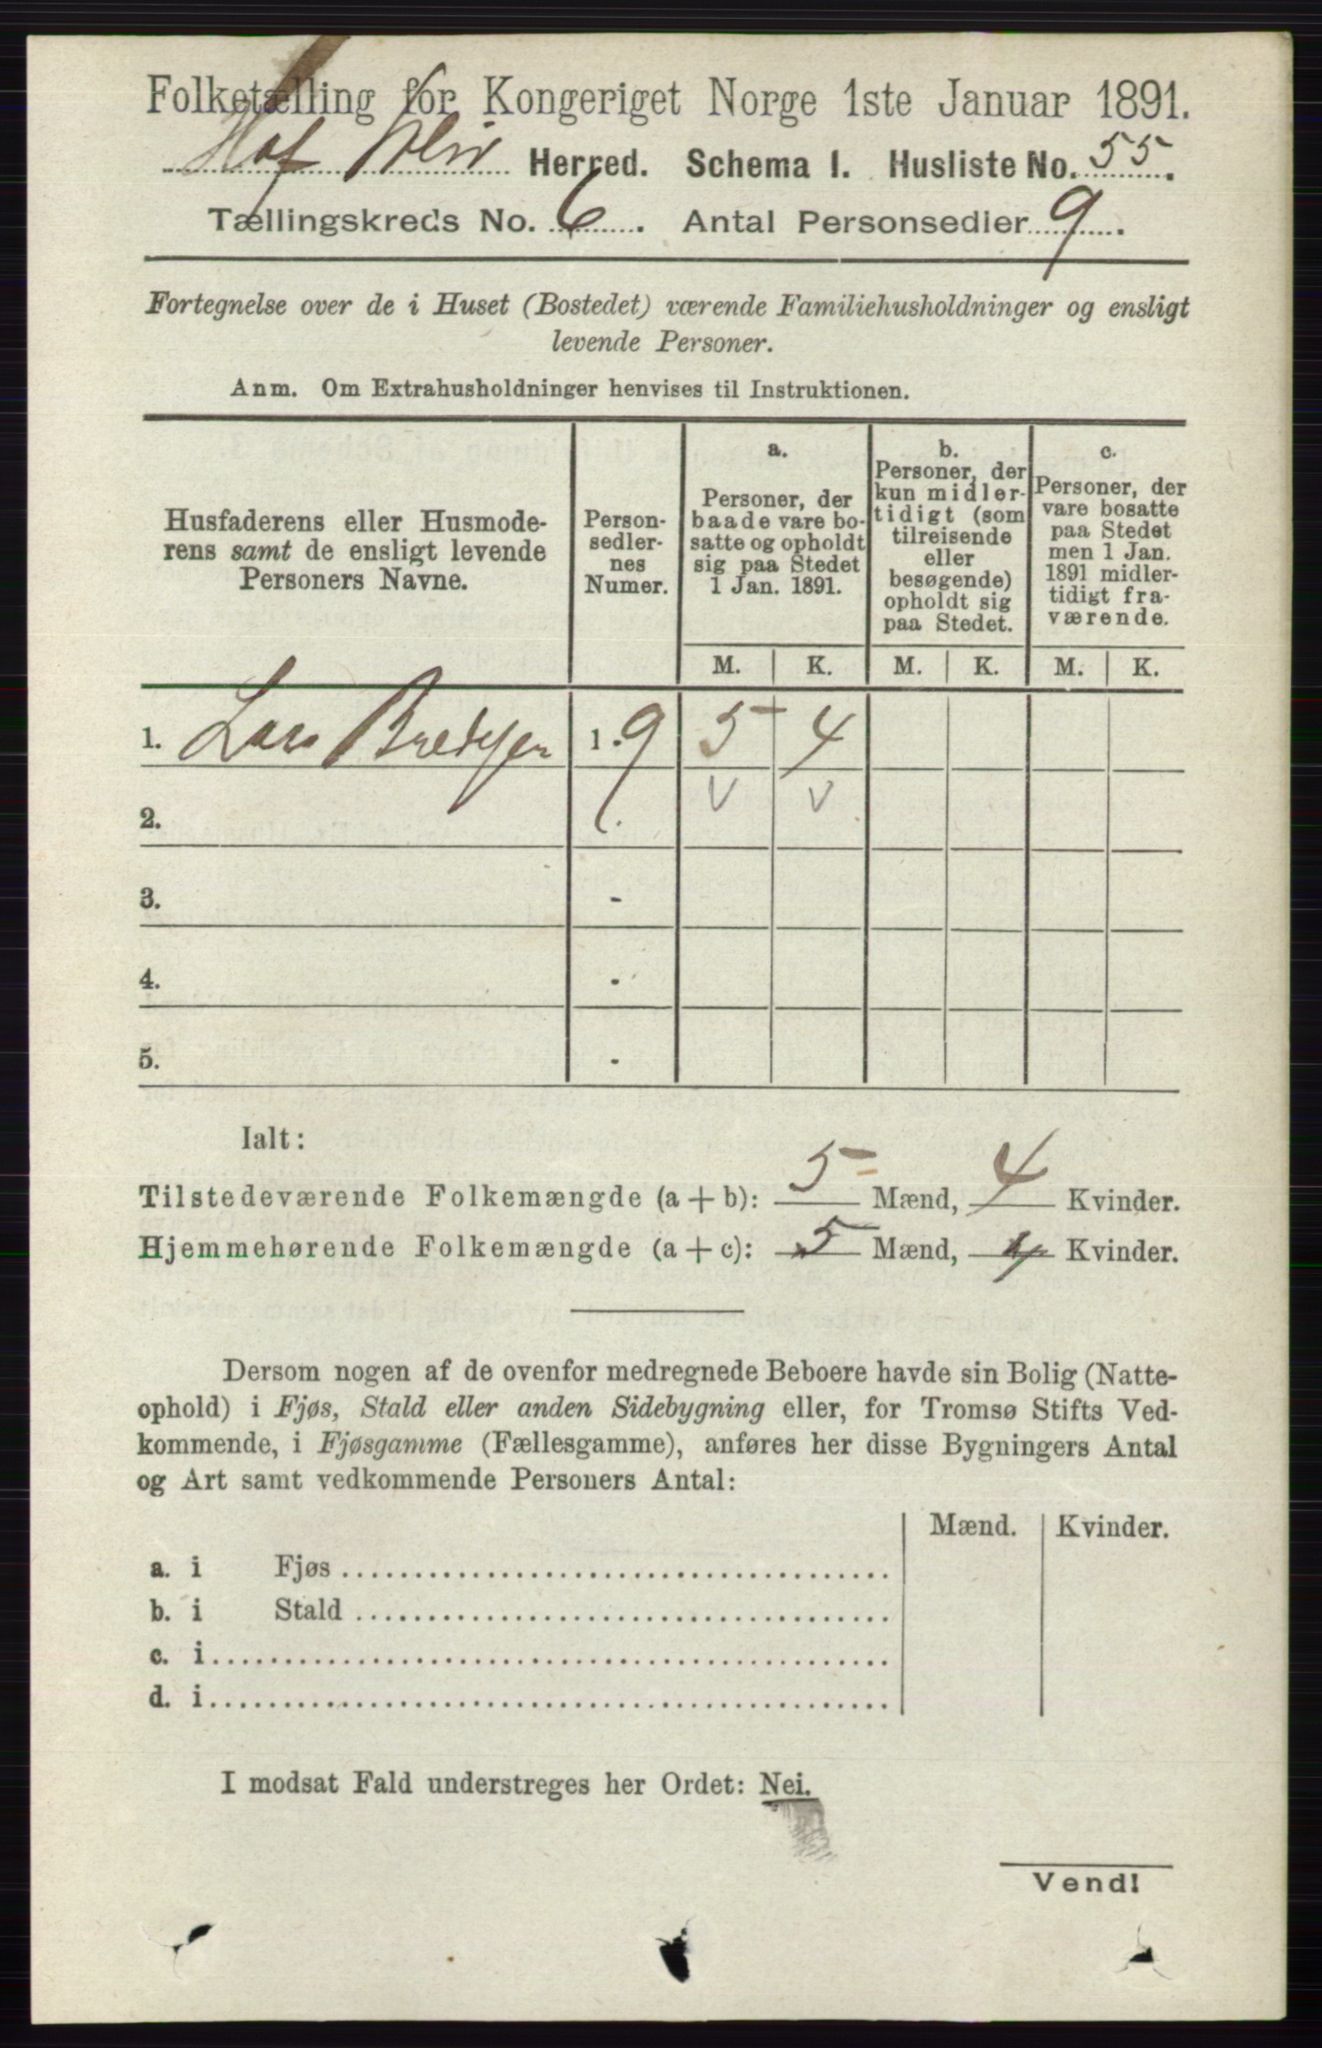 Folketælling for Kongeriget Norge 1ste Januar 1891.
Hof Herred. Schema I. Husliste No. 55.
Tællingskreds No. 6. Antal Personsedler 9.
Fortegnelse over de i Huset (Bostedet) værende Familiehusholdninger og ensligt
levende Personer.
Anm. Om Extrahusholdninger henvises til Instruktionen.
Husfaderens eller Husmode-
rens samt de ensligt levende
Personers Navne.
Person-
sedler-
nes
Numer.
a.
Personer, der
baade vare bo-
satte og opholdt
sig paa Stedet
1 Jan. 1891.
b.
Personer, der
kun midler-
tidigt (som
tilreisende
eller
besøgende)
opholdt sig
paa Stedet.
c.
Personer, der
vare bosatte
paa Stedet
men 1 Jan.
1891 midler-
tidigt fra-
værende.
M. K. M. K. M. K.
1. Lars 1.9 5 4
2.
3. -
4. -
5. -
Ialt:
Tilstedeværende Folkemængde (a + b): 5 Mænd, 4 Kvinder.
Hjemmehørende Folkemængde (a + c): 5 Mænd, 4 Kvinder.
Dersom nogen af de ovenfor medregnede Beboere havde sin Bolig (Natte-
ophold) i Fjøs, Stald eller anden Sidebygning eller, for Tromsø Stifts Ved-
kommende, i Fjøsgamme (Fællesgamme), anføres her disse Bygningers Antal
og Art samt vedkommende Personers Antal:
Mænd. Kvinder.
a. i Fjøs
b. i Stald
c. i
d. i
I modsat Fald understreges her Ordet: Nei.
Vend!